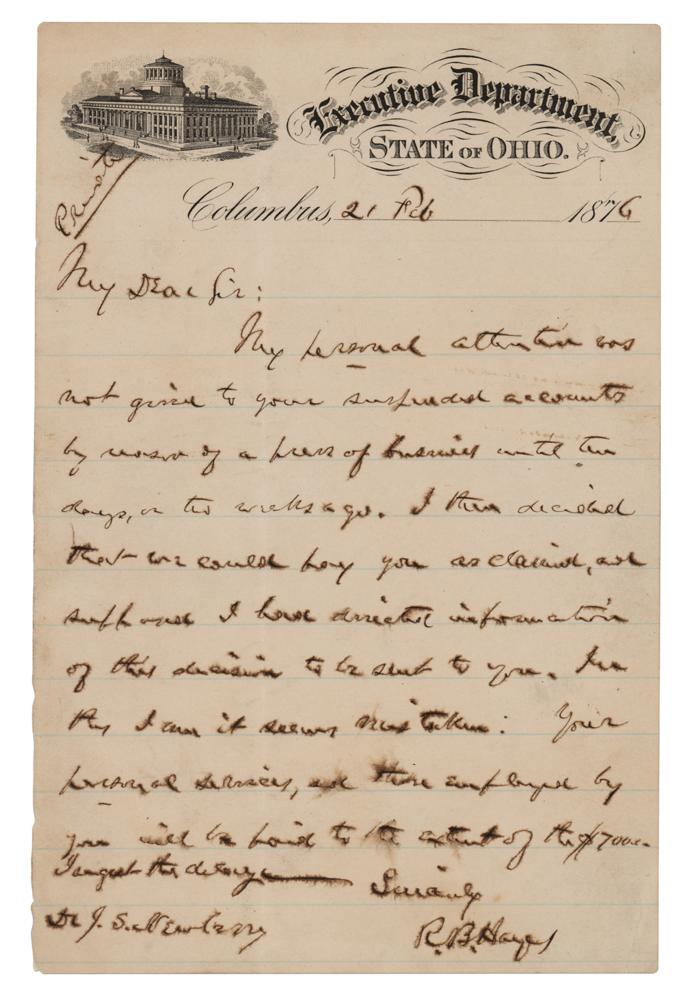 Executive Department,
STATE OF OHIO.
Private
Columbus, 21 Feb 1876
My Dear Sir:
My personal attention was
not given to your suspended accounts
by reason of a press of business until ten
days, or two weeks ago. I then decided
that we could pay you as claimed, and
supposed I had directed information
of this decision to be sent to you. In
this I am it seems mistaken: Your
personal services, and those employed by
you will be paid to the extent of the $7000.
I regret the delay
Sincerely
R. B. Hayes
Dr J. S. Newberry